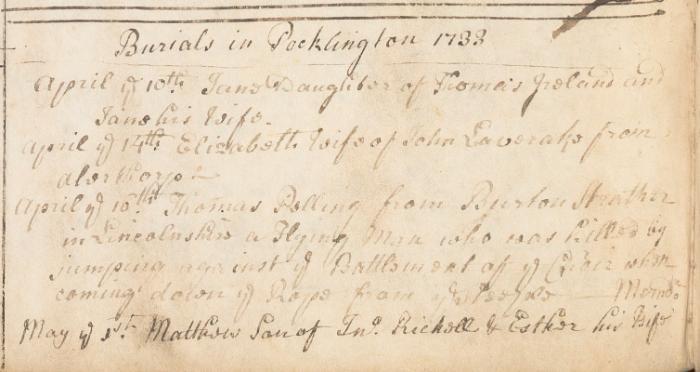 Burials in Pocklington 1733
April ye 10th Jane Daughter of Thomas Ireland and
Jane his Wife.
April ye 14th Elizabeth Wife of John Laverake from
alerthorp
April ye 16th Thomas Pelling from Burton Strather
in Lincolnshire a Flying Man who was killed by
jumping against ye Battlement of ye Choir when
coming down ye Rope from ye Steeple
May ye 1st Matthew Son of Jno. Rickell & Esther his Wife